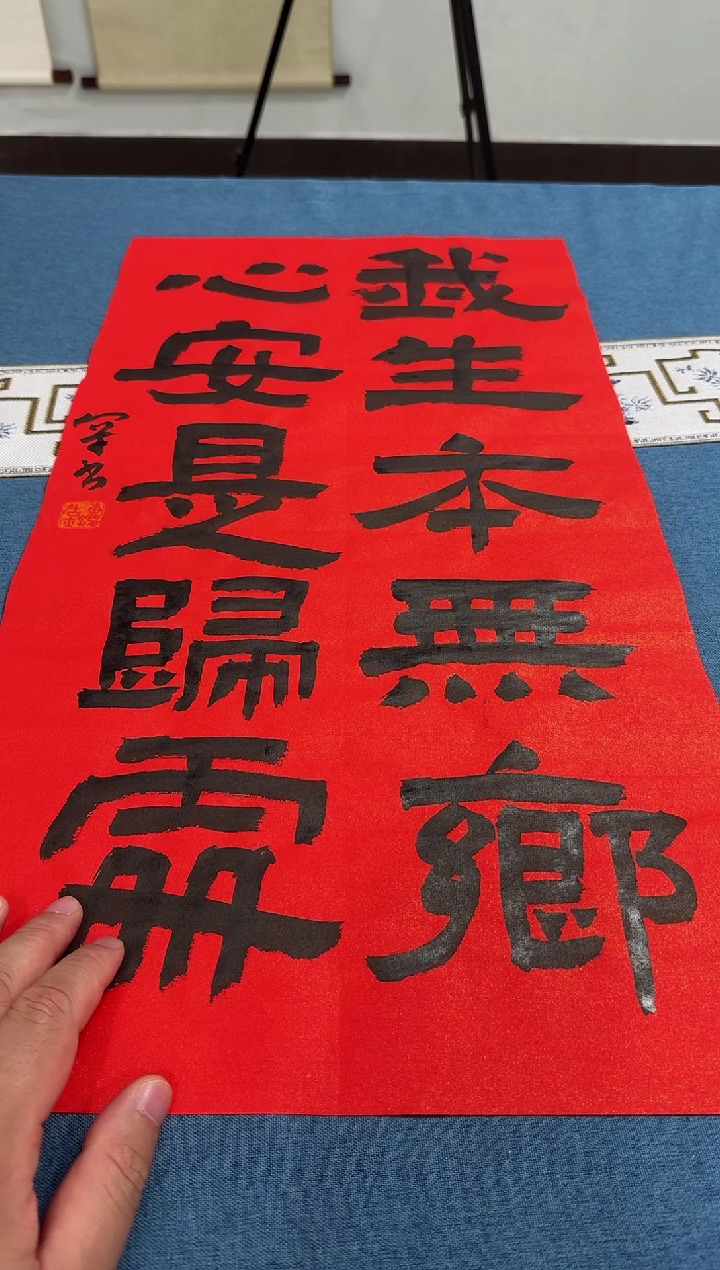 我生本無鄉
心安是歸處